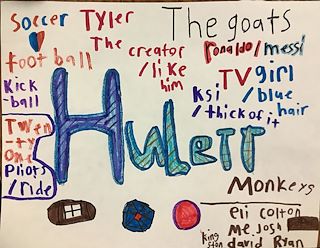 Soccer
football
Kick
-ball
Twen
-ty
One
Pliots
/ride
Tyler
The creator
/like
him
The goats
ronaldo/messi
TV girl
/blue
hair
Ksi
/thick of it
Hulett
Monkeys
eli colton
me, Josh
king
ston
david Ryan